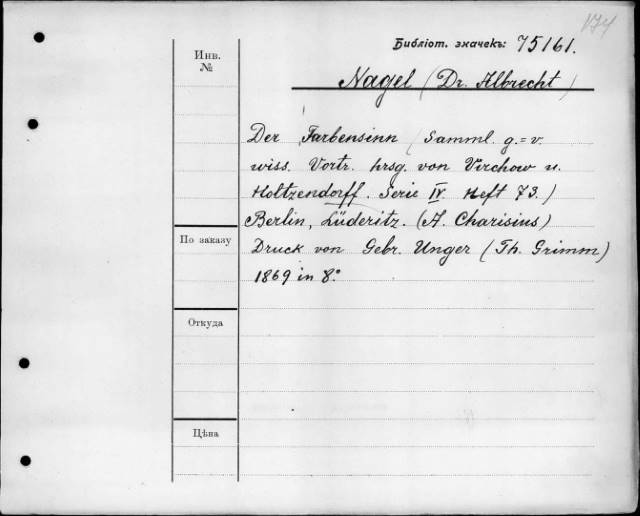 174
Библіот. значекъ: 75161.
Инв.
№
Nagel (Dr. Albrecht)
Der Farbensinn (Samml. g.=v.
wiss. Vortr. hrsg. von Virchow u.
Holtzendorff. Serie IV. Heft 73.)
Berlin, Lüderitz. (A. Charisius)
По заказу
Druck von Gebr. Unger (Th. Grimm)
1869 in 8°
Откуда
Цѣна